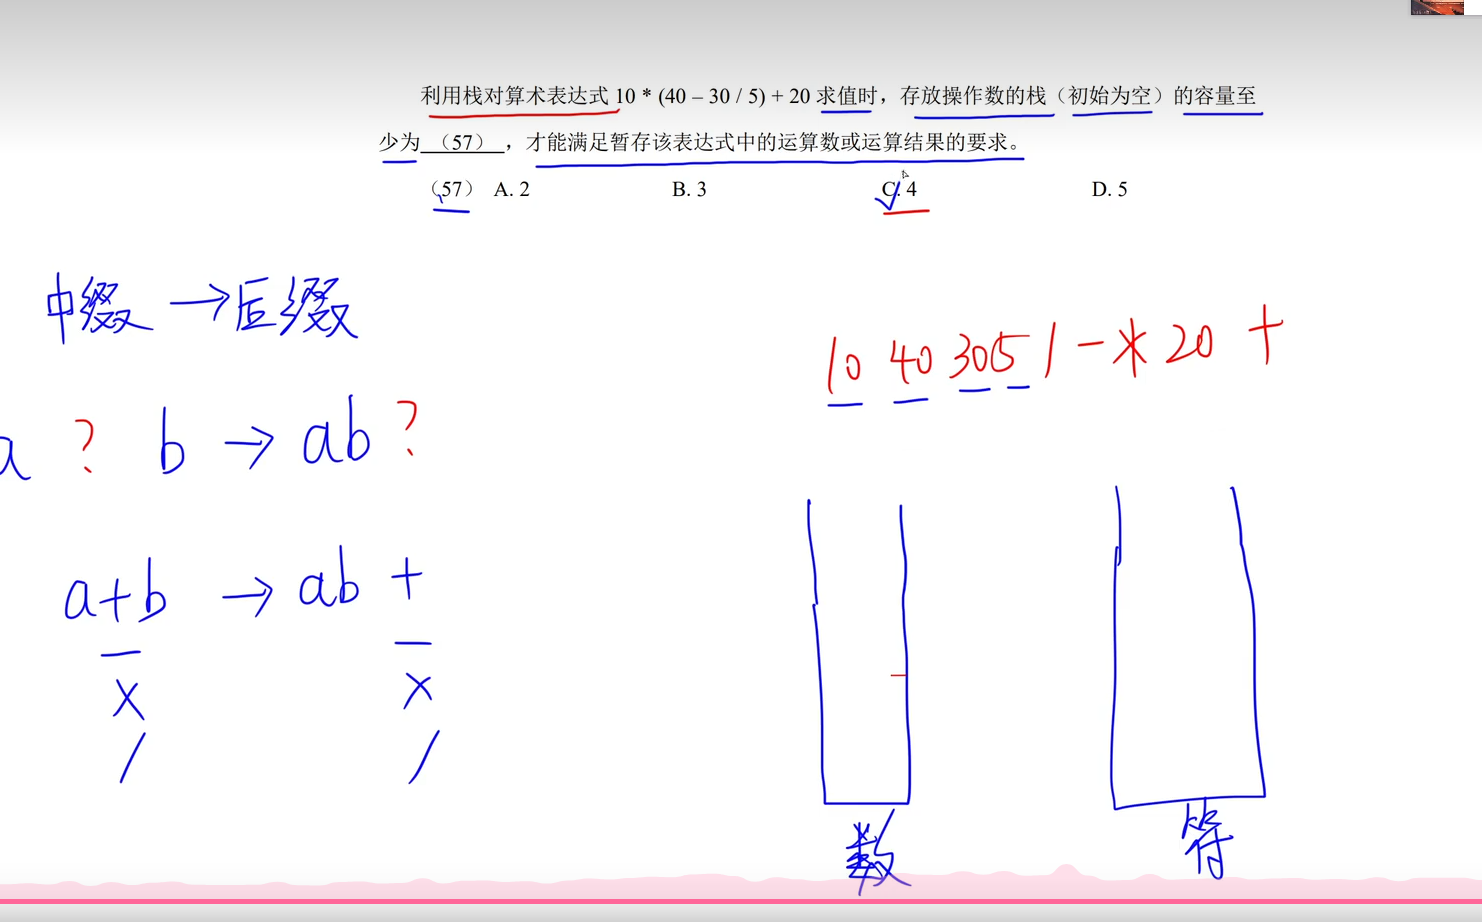 利用栈对算术表达式 10 * (40 – 30 / 5) + 20 求值时，存放操作数的栈（初始为空）的容量至
少为 （57） ，才能满足暂存该表达式中的运算数或运算结果的要求。
（57） A. 2 B. 3 C. 4 D. 5
中缀 → 后缀
10 40 30 5 / - * 20 +
a ? b → ab ?
a+b → ab +
x x
/ /
数 符